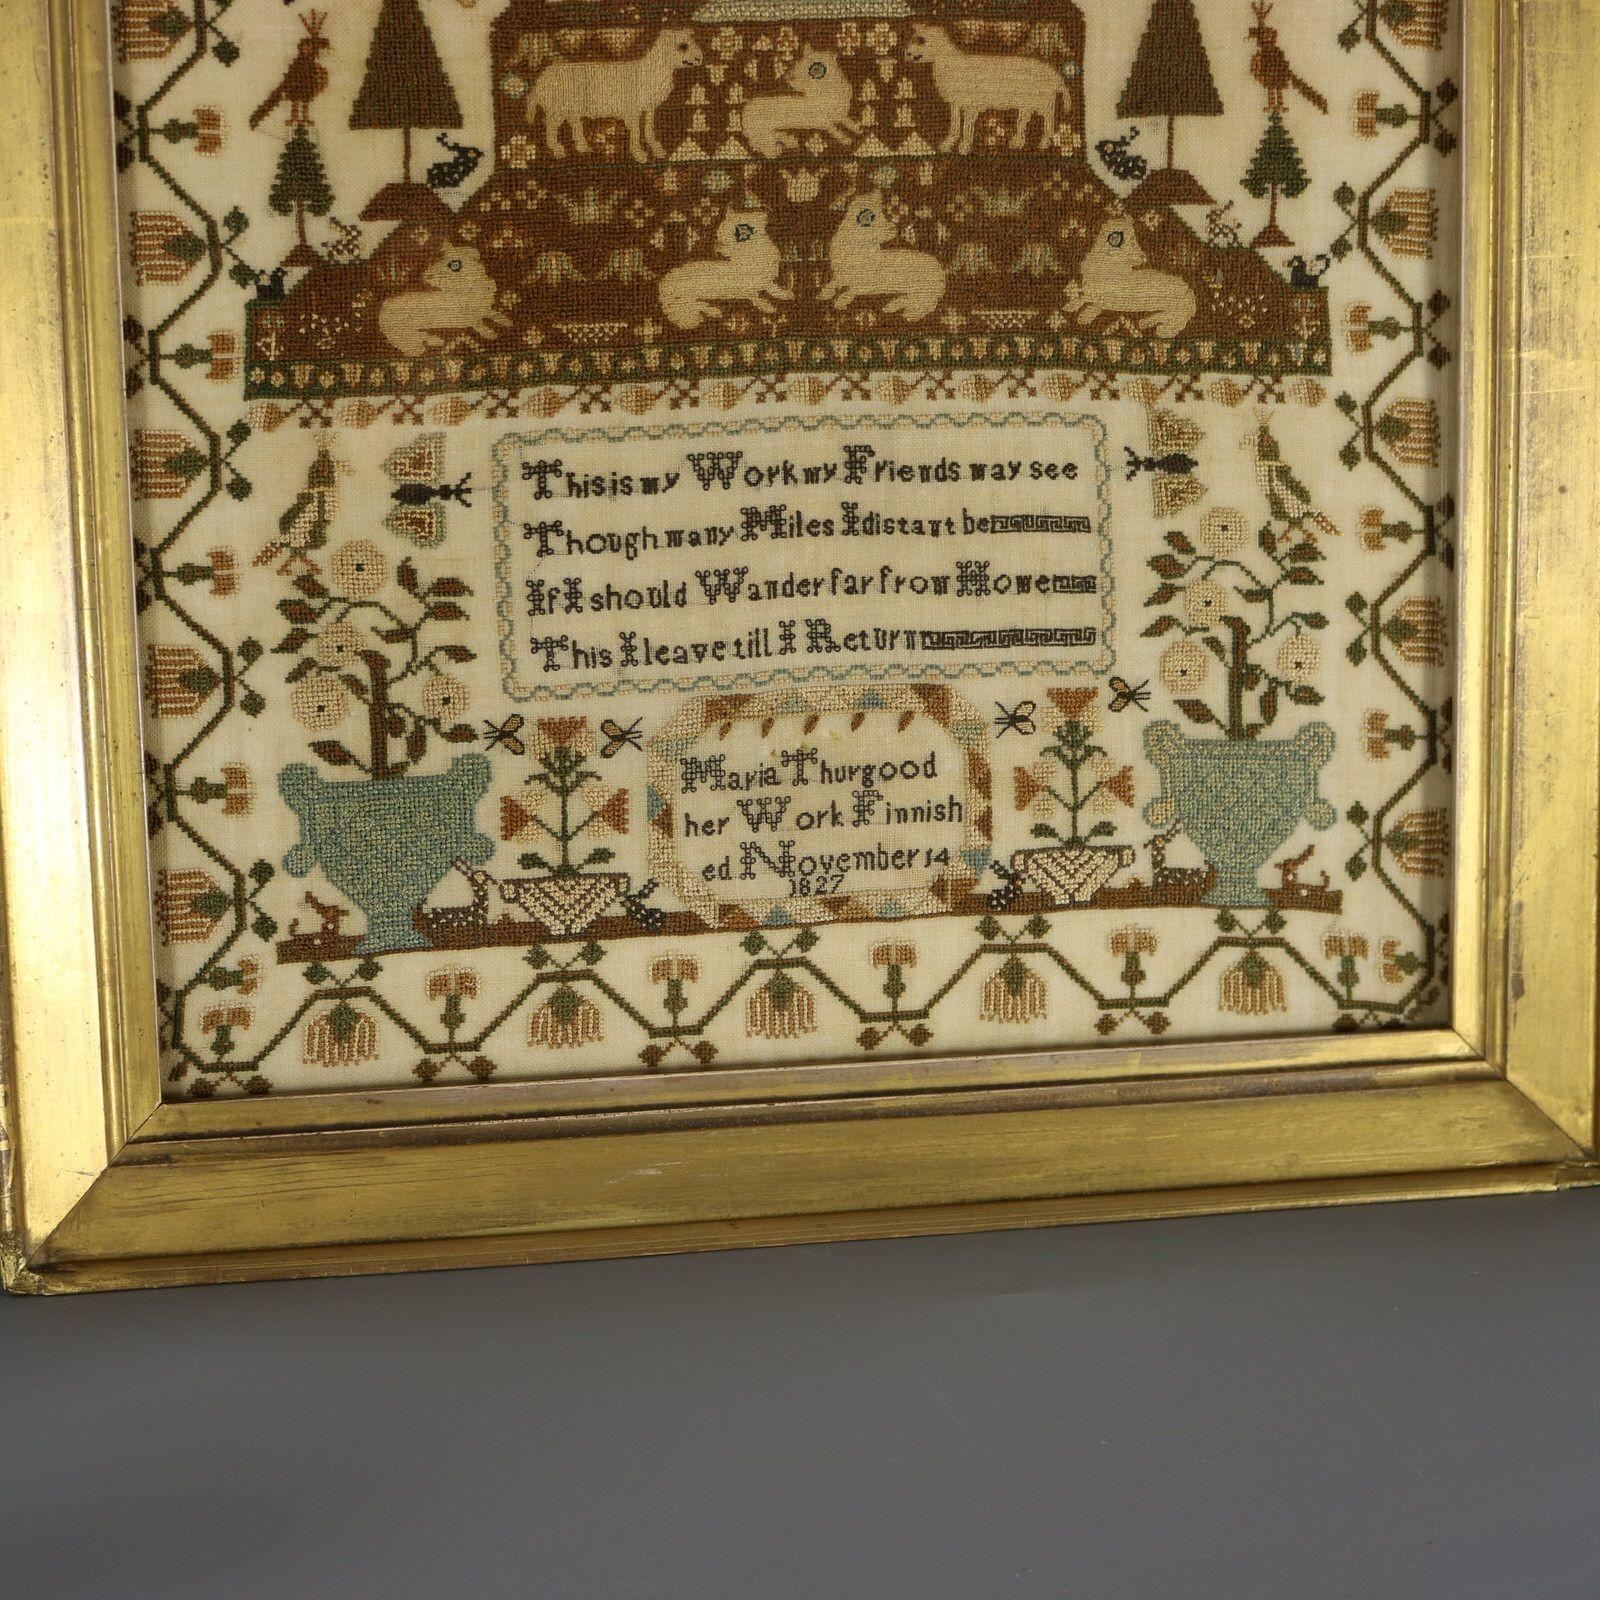 This is my Work my Friends may see
Though many Miles I distant be
If I should Wander far from Home
This I leave till I Return
Maria Thurgood
her Work Finnish
ed November 14
1827